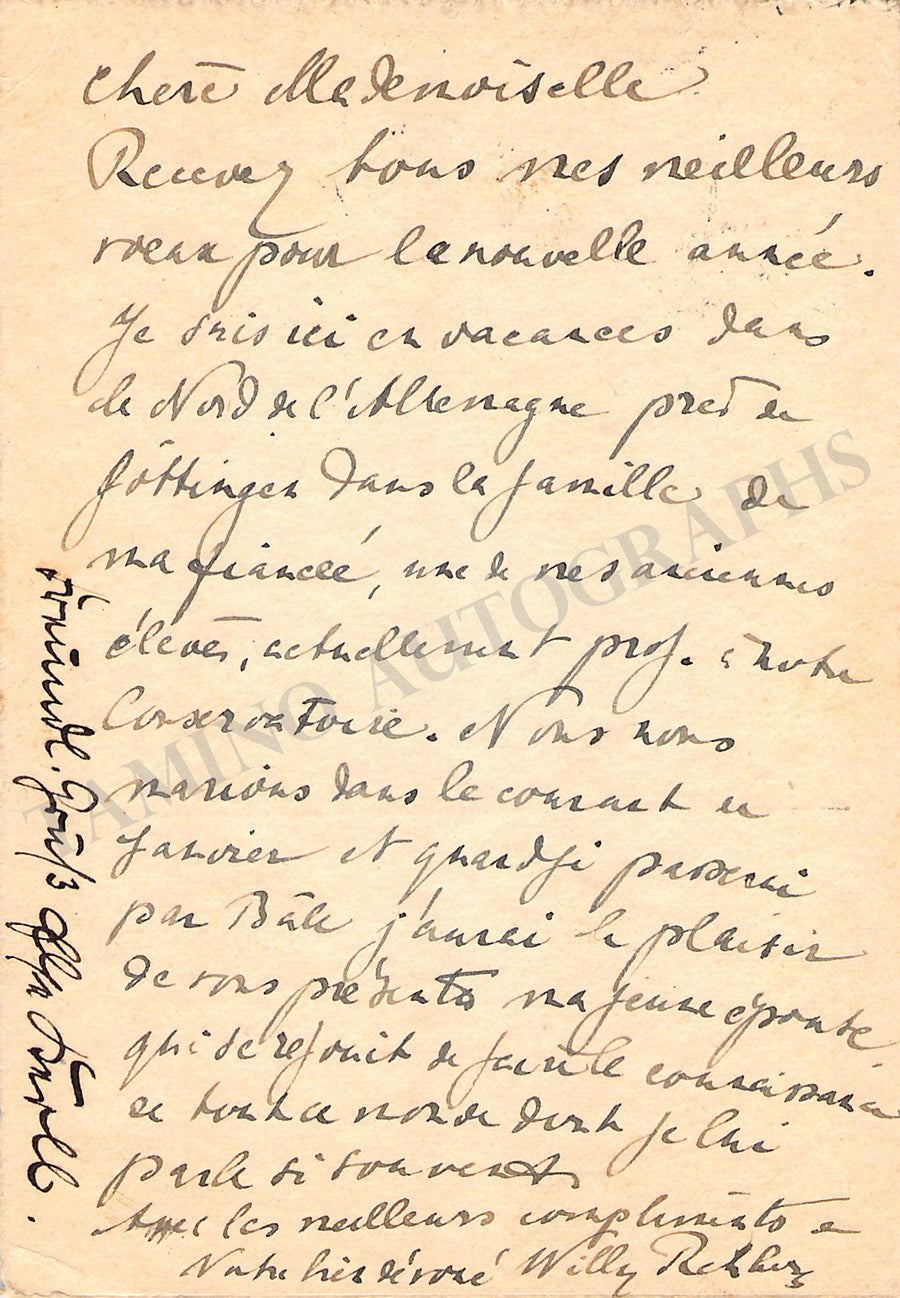 Chère Mademoiselle
Recevez tous mes meilleurs
voeux pour la nouvelle année.
Je suis ici en vacances dans
le Nord de l'Allemagne près de
Göttingen dans la famille de
ma fiancée, une de mes anciennes
élèves, actuellement prof. à notre
Conservatoire. Nous nous
marions dans le courant de
Janvier et quand je passerai
par Bâle j'aurai le plaisir
de vous présenter ma jeune épouse
qui se réjouit de faire la connaissance
de tout ce monde dont je lui
parle si souvent
Avec les meilleurs compliments de
Votre très dévoué Willy Rehberg
Freundl. Gruß
TAMINO AUTOGRAPHS